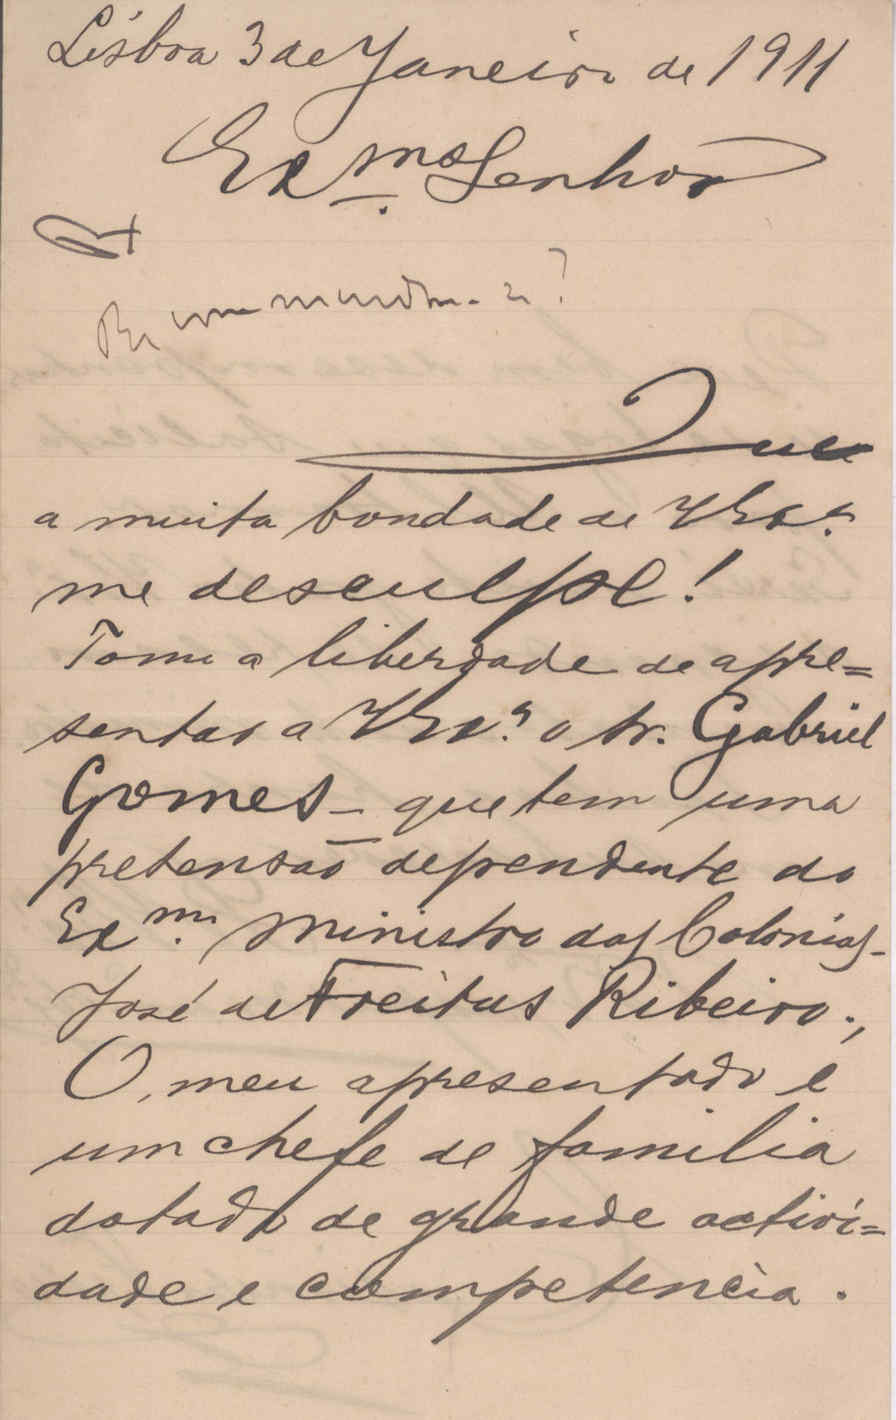 Lisboa 3 de Janeiro de 1911
Ex.mo Senhor
R
Que
a muita bondade de V Ex.ª
me desculpe!
Tomo a liberdade de apre=
sentar a V Ex.ª o sr. Gabriel
Gomes – que tem uma
pretensão dependente do
Ex.mo Ministro das Colonias –
José de Freitas Ribeiro.,
O, meu apresentado é
um chefe de familia
dotado de grande activi=
dade e competencia.